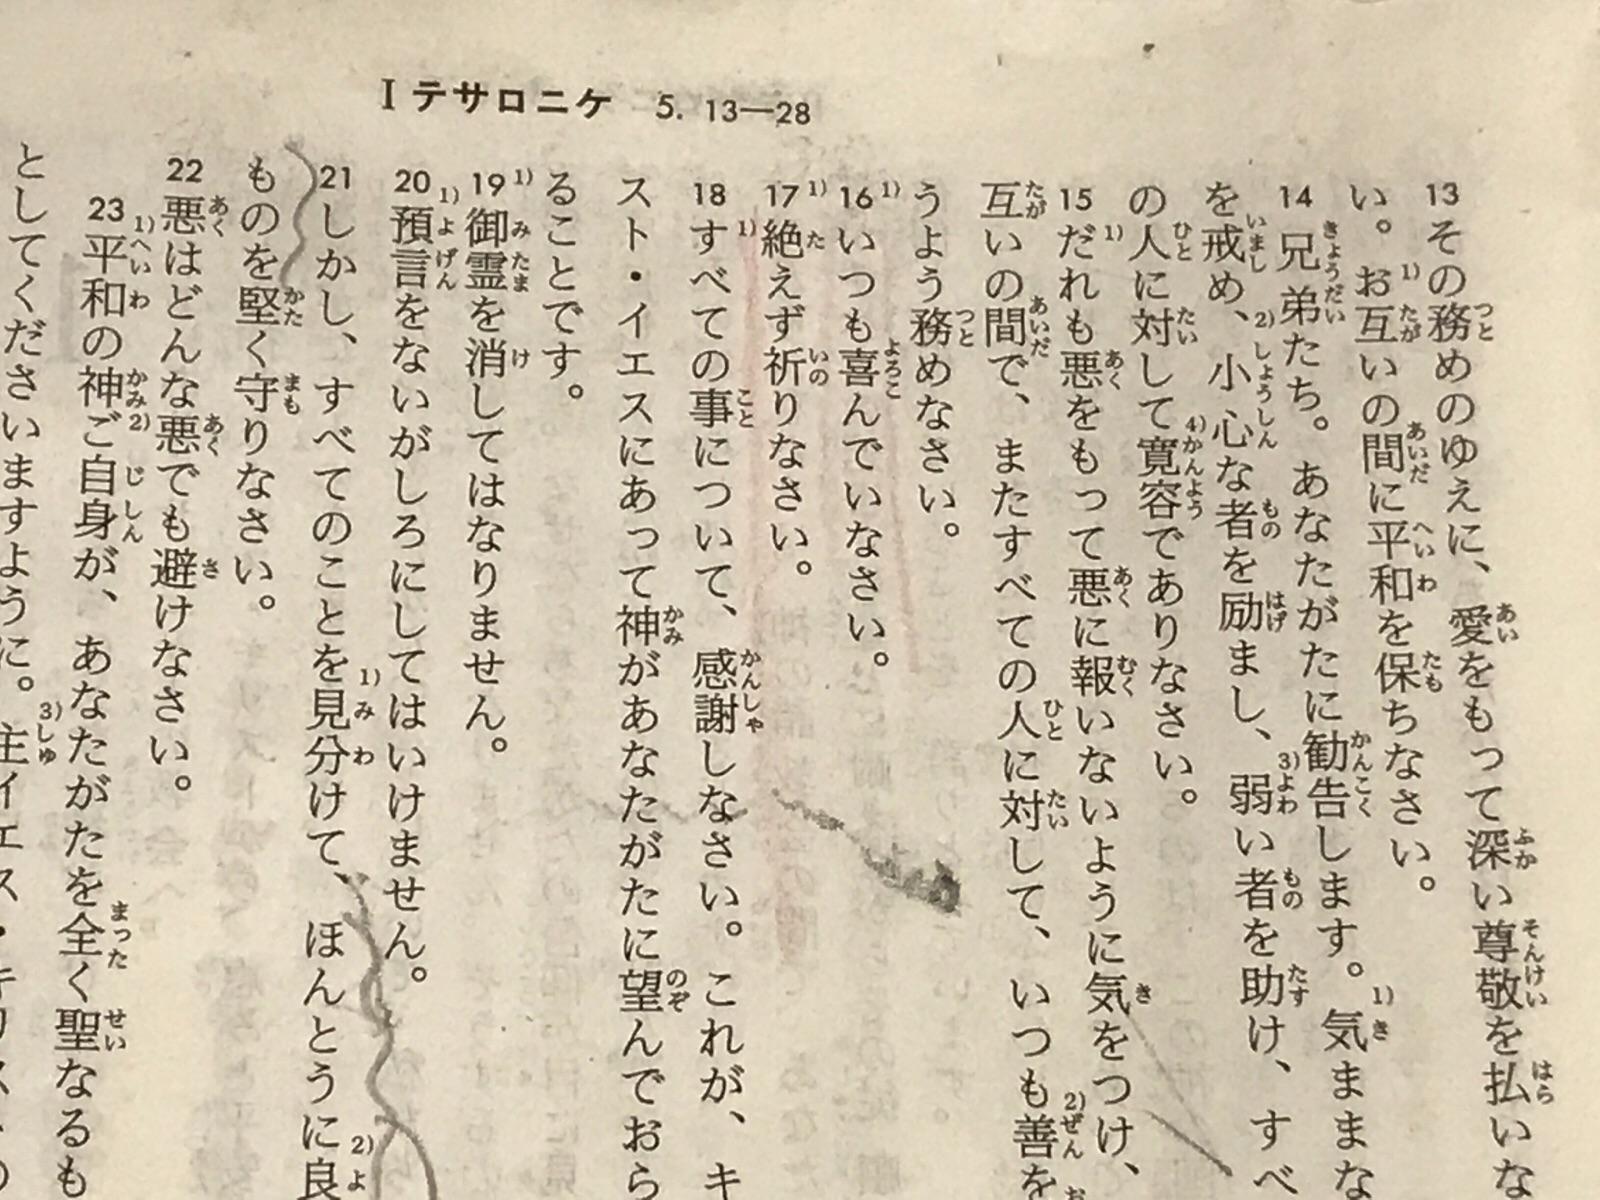 I テサロニケ 5. 13—28
13 その務めのゆえに、愛をもって深い尊敬を払いな
い。お互いの間に平和を保ちなさい。
14 兄弟たち。あなたがたに勧告します。気ままな
を戒め、小心な者を励まし、弱い者を助け、すべ
の人に対して寛容でありなさい。
15 だれも悪をもって悪に報いないように気をつけ、
互いの間で、またすべての人に対して、いつも善を
うよう務めなさい。
16 いつも喜んでいなさい。
17 絶えず祈りなさい。
18 すべての事について、感謝しなさい。これが、キ
スト・イエスにあって神があなたがたに望んでおら
ることです。
19 御霊を消してはなりません。
20 預言をないがしろにしてはいけません。
21 しかし、すべてのことを見分けて、ほんとうに良
ものを堅く守りなさい。
22 悪はどんな悪でも避けなさい。
23 平和の神ご自身が、あなたがたを全く聖なるも
としてくださいますように。主イエス・キリストの